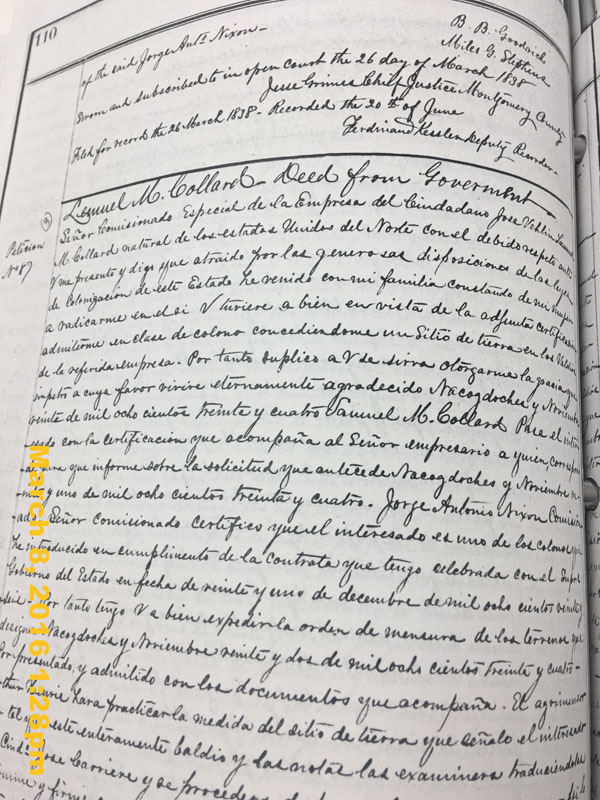 110
of the said Jorge Ant° Nixon -
B. B. Goodrich
Miles G. Stephens
Sworn and subscribed to in open court the 26 day of March 1838
Jesse Grimes Chief Justice Montgomery County
Filed for record the 26 March 1838 - Recorded the 20th of June
Ferdinand Kesslen Deputy Recorder -
Lemuel M. Collard - Deed from Goverment
Peticion
No 87
Señor Comisionado Especial de la Empresa del Ciudadano Jose Vehlin Samuel
M. Collard natural de los estados Unidos del Norte con el debido respeto ante
V me presento y digo que atraido por las generosas disposiciones de las leyes
de Colonizacion de este Estado he venido con mi familia constando de mi muger
a radicarme en el si V tuviere a bien en vista de la adjunta certificacion
admitirme en clase de colono concediendome un Sitio de tierra en los Valdios
de la referida empresa. Por tanto suplico a V se sirva otorgarme la gracia que
impetro a cuya favor vivire eternamente agradecido Nacogdoches y Noviembre
veinte de mil ocho cientos treinta y cuatro Samuel M. Collard Pase el inter
esado con la certificación que acompaña al Señor empresario a quien correspon
de para que informe sobre la solicitud que antecede Nacogdoches y Noviembre v
y uno de mil ocho cientos treinta y cuatro. Jorge Antonio Nixon Comisio
nado Señor comisionado certifico que el interesado es uno de los colonos que
he introducido en cumplimento de la contrata que tengo celebrada con el Supor
Gobierno del Estado en fecha de veinte y uno de decembre de mil ocho cientos veinte y
seis. Por tanto tengo V a bien expedir la orden de mensura de los terrenos que
designa Nacogdoches y Noviembre veinte y dos de mil ocho cientos treinta y cuatro -
Por presentado, y admitido con los documentos que acompaña. El agrimensor
Henrie hara practicar la medida del sitio de tierra que señalo el interesado
tal que este enteramente baldio y las notas las examinera traduciendolas
Ciudo Jose Carriere y se proceder
y firm
March 8, 2016 1:28pm